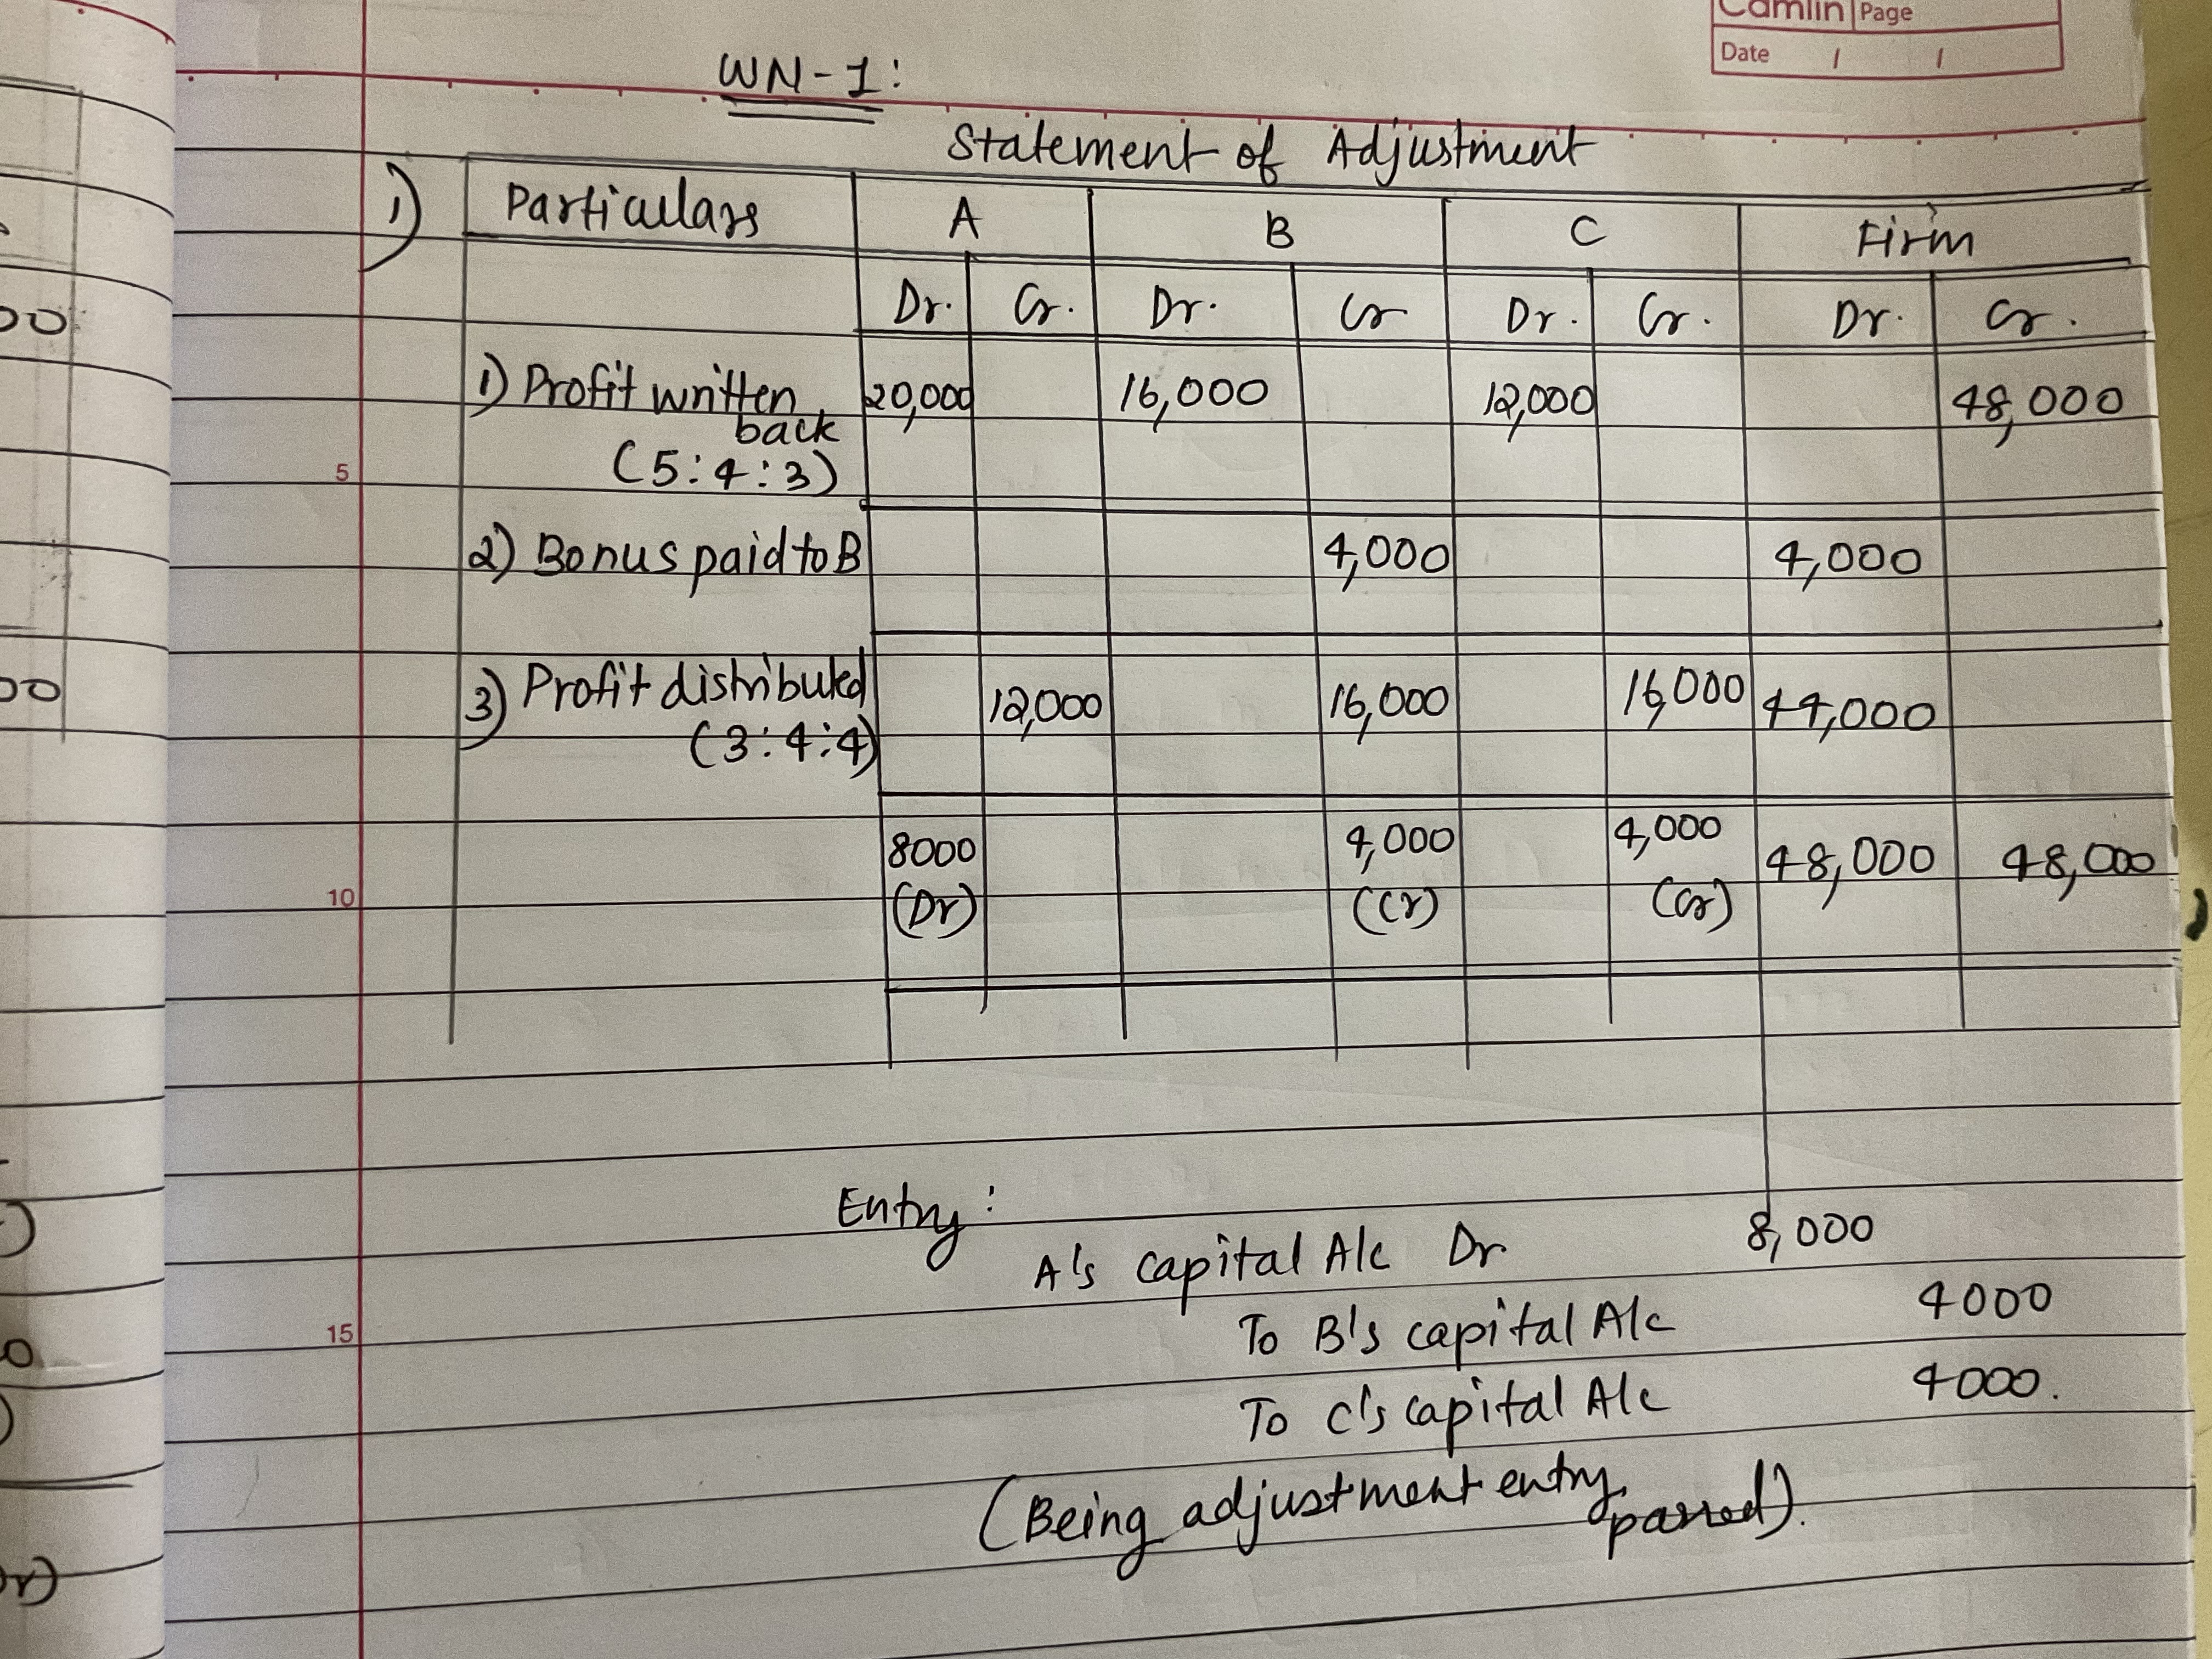 Camlin Page
Date / /
WN-1:
Statement of Adjustment
1) Particulars A B C Firm
Dr. Cr. Dr. Cr Dr. Cr. Dr. Cr.
1) Profit written 20,000 16,000 12,000 48,000
back
(5:4:3)
5
2) Bonus paid to B 4,000 4,000
3) Profit distributed 12,000 16,000 16,000 44,000
(3:4:4)
8000 4,000 4,000 48,000 48,000
(Dr) (Cr) (Cr)
10
Entry:
A's capital A/c Dr 8,000
To B's capital A/c 4000
15
To C's capital A/c 4000.
(Being adjustment entry
passed).
00
00